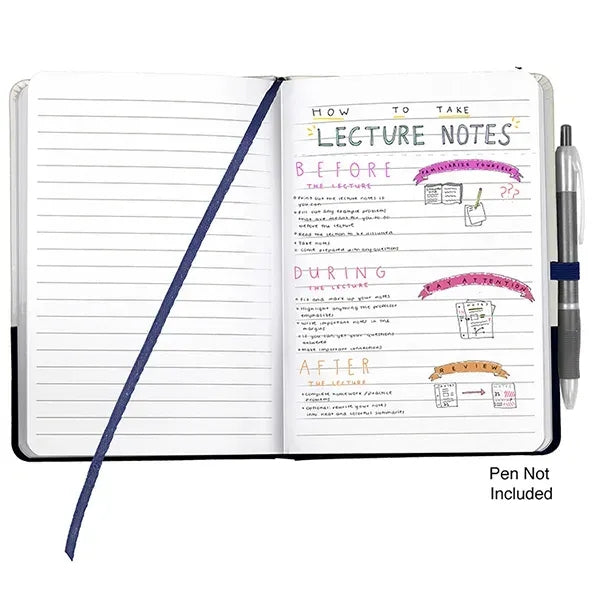 HOW TO TAKE
LECTURE NOTES
BEFORE
THE LECTURE
FAMILIARIZE YOURSELF
???
• Print out the lecture notes if
you can
• Fill out any example problems
that are meant for you to do
before the lecture
• Read the section to be discussed
• Take notes
• Come prepared with any questions
DURING
THE LECTURE
PAY ATTENTION
• Fix and mark up your notes
• Highlight anything the professor
emphasizes
• Write important notes in the
margins
• If you can get your questions
answered
• Make important connections
AFTER
THE LECTURE
REVIEW
NOTES
NOTES
• Complete homework/practice
problems
• Optional: rewrite your notes
into neat and colorful summaries
Pen Not
Included